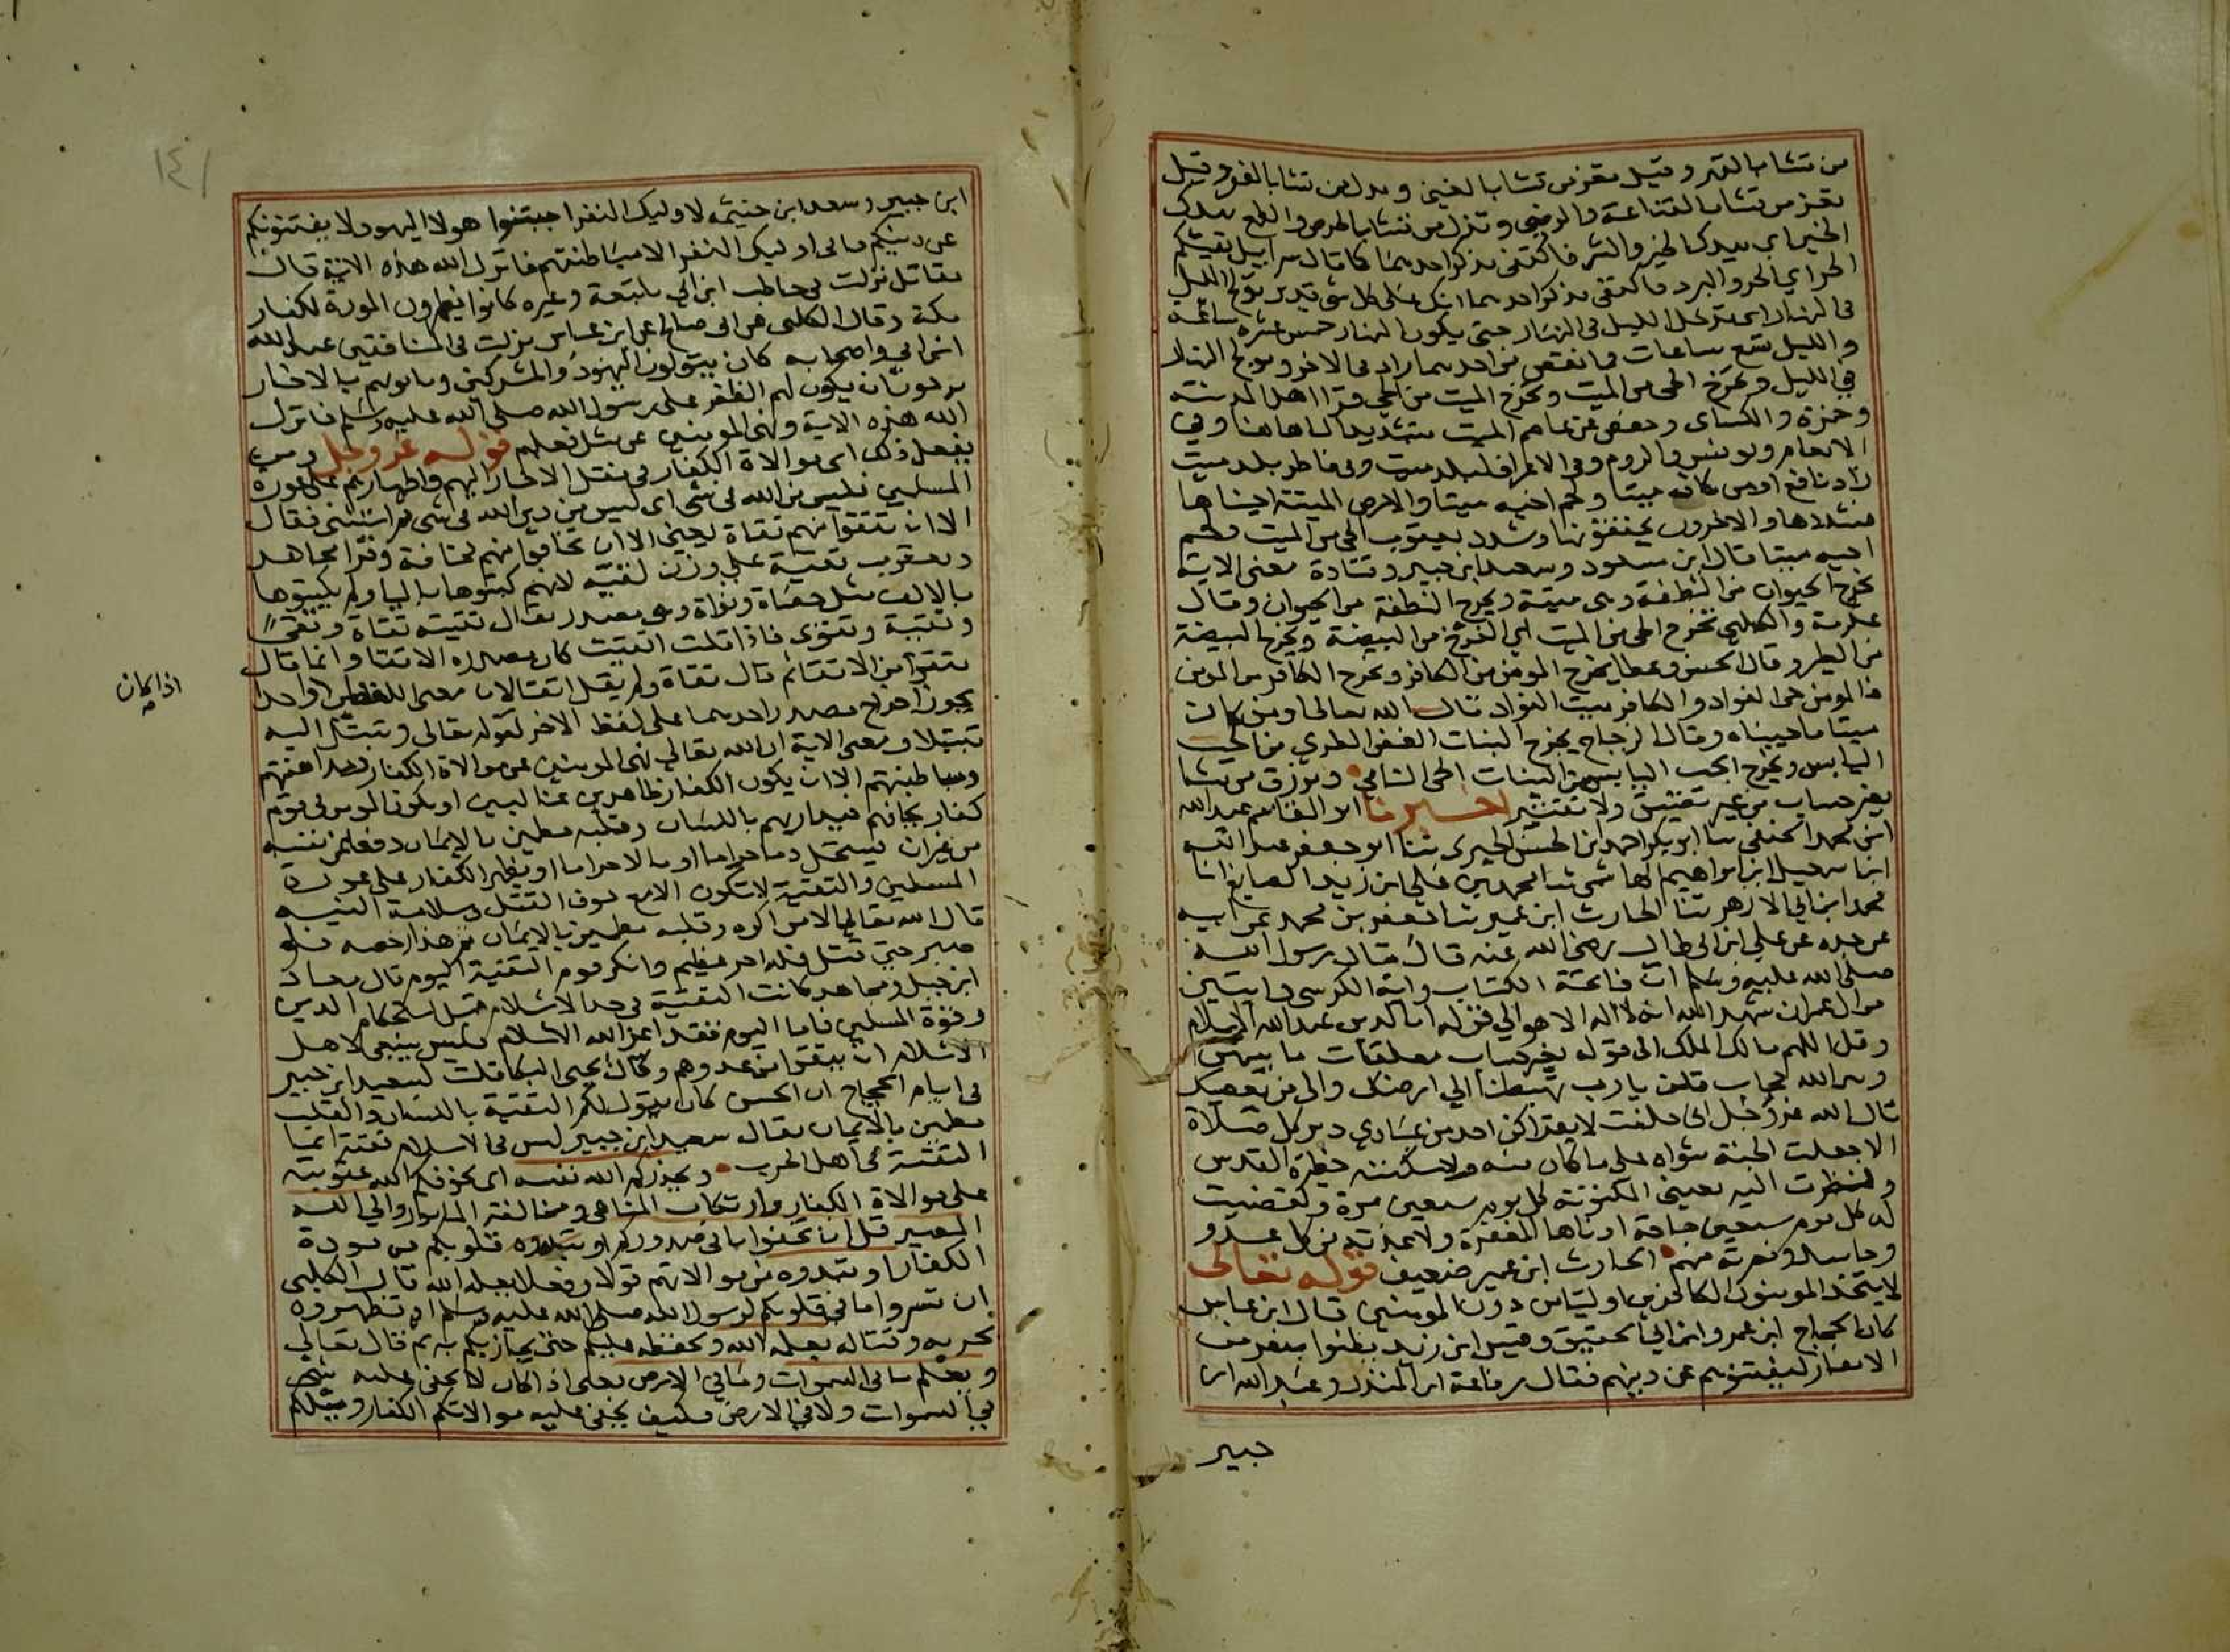 من تشا بالقهر وقيل تعز من تشا بالغنى وتذل من تشا بالفقر وقيل
تعز من تشا بالقناعة والرضى وتذل من تشا بالحرص والطمع بيدك
الخير اي بيدك الخير والشر فاكتفى بذكر احدهما كما قال سرابيل تقيكم
الحر اي الحر والبرد فاكتفى بذكر احدهما انك على كل شي قدير تولج الليل
في النهار اي تدخل الليل في النهار حتى يكون النهار خمس عشرة ساعة
والليل تسع ساعات فما نقص من احدهما زاد في الاخر وتولج النهار
في الليل وتخرج الحي من الميت وتخرج الميت من الحي قرا اهل المدينة
وحمزة والكساى وحفص عن عاصم الميت بتشديد اليا هاهنا وفي
الانعام ويونس والروم وفي الاعراف لبلد ميت وفي فاطر بلد ميت
زاد نافع اومن كان ميتا ولحم اخيه ميتا والارض الميتة احيناها
فشددها والاخرون يخففونها وشدد يعقوب الحي من الميت ولحم
اخيه ميتا قال ابن مسعود وسعيد ابن جبير وقتادة معنى الاية
يخرج الحيوان من النطفة وهي ميتة ويخرج النطفة من الحيوان وقال
عكرمة والكلبي تخرج الحي من الميت اي الفرخ من البيضة وتخرج البيضة
من الطير وقال الحسن وعطا يخرج المومن من الكافر وتخرج الكافر من المومن
فالمومن حي الفواد والكافر ميت الفواد قال الله تعالى اومن كان
ميتا فاحييناه وقال الزجاج يخرج النبات الغض الطري من الحب
اليابس ويخرج الحب اليابس من النبات الحي النامي وترزق من تشا
بغير حساب من غير تضييق ولا تقتير اخبرنا ابو القاسم عبد الله
ابن محمد الحنفي ثنا ابو بكر احمد ابن الحسن الحيري ثنا ابو جعفر عبد الله
ابن اسمعيل ابن ابراهيم الهاشمي ثنا محمد بن علي ابن زيد الصايغ انا
محمد ابن ابي الازهر ثنا الحارث ابن عمير ثنا جعفر بن محمد عن ابيه
عن جده عن علي ابن ابي طالب رضي الله عنه قال قال رسول الله
صلى الله عليه وسلم ان فاتحة الكتاب واية الكرسي والايتين
من ال عمران شهد الله انه لا اله الا هو الى قوله ان الدين عند الله الاسلام
وقل اللهم مالك الملك الى قوله بغير حساب معلقات ما بينهن
وبين الله حجاب قلن يا رب تهبطنا الى ارضك والى من يعصيك
قال الله عز وجل اني حلفت لا يقراكن احد من عبادي دبر كل صلاة
الا جعلت الجنة مثواه على ما كان منه ولا سكنته حظيرة القدس
ولنظرت اليه بعيني المكنونة كل يوم سبعين مرة ولقضيت
له كل يوم سبعين حاجة ادناها المغفرة ولاعذته من كل عدو
وحاسد ونصرته منهم الحارث ابن عمير ضعيف قوله تعالى
لا يتخذ المومنون الكافرين اوليا من دون المومنين قال ابن عباس
كان الحجاج ابن عمرو وابن ابي الحقيق وقيس ابن زيد يبطنوا بنفر من
الانصار ليفتنوهم عن دينهم فقال رفاعة ابن المنذر وعبد الله ابن
جبير
ابن جبير وسعد ابن خيثمه لاوليك النفر اجتنبوا هولا اليهود لا يفتنونكم
عن دينكم فابى اوليك النفر الا مباطنتهم فانزل الله هذه الاية قال
مقاتل نزلت في حاطب ابن ابي بلتعة وغيره كانوا يظهرون المودة لكفار
مكة وقال الكلبي عن ابي صالح عن ابن عباس نزلت في المنافقين عبد الله
ابن ابي واصحابه كان يتولون اليهود والمشركين وياتونهم بالاخبار
يرجون ان يكون لهم الظفر على رسول الله صلى الله عليه وسلم فانزل
الله هذه الاية ونهى المومنين عن مثل فعلهم قوله عز وجل ومن
يفعل ذلك اي موالاة الكفار في نقل الاخبار اليهم واظهارهم على عورة
المسلمين فليس من الله في شي اي ليس من دين الله في شي ثم استثنى فقال
الا ان تتقوا منهم تقاة يعني الا ان تخافوا منهم مخافة وقرا مجاهد
ويعقوب تقية على وزن لقية لانهم كتبوها باليا ولم يكتبوها
بالالف مثل حصاة ونواة وهي مصدر يقال تقيته تقاة وتقى
وتقية وتقوى فاذا قلت اتقيت كان مصدره الاتقا وانما قال
تتقوا من الاتقا ثم قال تقاة ولم يقل اتقا لان معنى اللفظين اذا كان واحدا
يجوز اخراج مصدر احدهما على لفظ الاخر كقوله تعالى وتبتل اليه
تبتيلا ومعنى الاية ان الله تعالى نهى المومنين عن موالاة الكفار ومداهنتهم
ومباطنتهم الا ان يكون الكفار ظاهرين غالبين او يكون المومن في قوم
كفار يخافهم فيداريهم باللسان وقلبه مطمين بالايمان دفعا عن نفسه
من غير ان يستحل دما حراما او مالا حراما او يظهر الكفار على عورة
المسلمين والتقية لا تكون الا مع خوف القتل وسلامة النية
قال الله تعالى الا من اكره وقلبه مطمين بالايمان ثم هذا رخصة فلو
صبر حتى قتل فله اجر عظيم وانكر قوم التقية اليوم قال معاذ
ابن جبل ومجاهد كانت التقية في جدة الاسلام قبل استحكام الدين
وقوة المسلمين فاما اليوم فقد اعز الله الاسلام فليس ينبغي لاهل
الاسلام ان يتقوا من عدوهم وقال يحيى البكا قلت لسعيد ابن جبير
في ايام الحجاج ان الحسن كان يقول لكم التقية باللسان والقلب
مطمين بالايمان فقال سعيد ابن جبير ليس في الاسلام تقية انما
التقية في اهل الحرب ويحذركم الله نفسه اي يخوفكم الله عقوبته
على موالاة الكفار وارتكاب المناهي ومخالفة المامور والى الله
المصير قل ان تخفوا ما في صدوركم او تبدوه قلوبكم من مودة
الكفار او تبدوه من موالاتهم قولا وفعلا يعلمه الله قال الكلبي
ان تسروا ما في قلوبكم لرسول الله صلى الله عليه وسلم او تظهروه
بحربه وقتاله يعلمه الله ويحفظه عليكم حتى يجازيكم به ثم قال تعالى
ويعلم ما في السموات وما في الارض يعني اذا كان لا يخفى عليه شي
في السموات ولا في الارض فكيف يخفى عليه موالاتكم الكفار وميلكم
اذا كان
١٤١